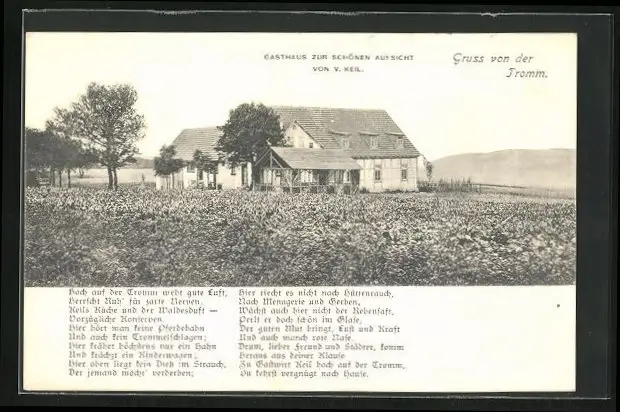 GASTHAUS ZUR SCHÖNEN AUSSICHT
VON V. KEIL.
Gruss von der
Tromm.
Hoch auf der Tromm weht gute Luft,
Herrscht Ruh' für zarte Nerven,
Keils Küche und der Waldesduft —
Vorzügliche Konserven.
Hier hört man keine Pferdebahn
Und auch kein Trommelschlagen;
Hier krähet höchstens nur ein Hahn
Und krächzt ein Kinderwagen;
Hier oben liegt kein Dieb im Strauch,
Der jemand möcht' verderben;
Hier riecht es nicht nach Hüttenrauch,
Nach Menagerie und Gerben,
Wächst auch hier nicht der Rebensaft,
Perlt er doch schön im Glase,
Der guten Mut bringt, Lust und Kraft
Und auch manch rote Nase.
Drum, lieber Freund und Städter, komm
Heraus aus deiner Klause
Zu Gastwirt Keil hoch auf der Tromm,
Du kehrst vergnügt nach Hause.